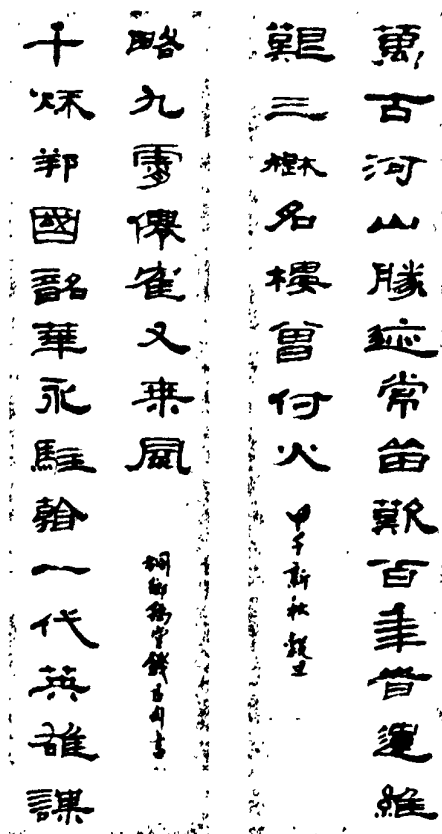 萬古河山勝迹常留歎百年旹運維
艱三名樓曾付火
甲午新秋穀旦
千秋邦國韶華永駐翰一代英雄謀
略九霄僊雀又乘風
桐鄉豫堂錢君匋書